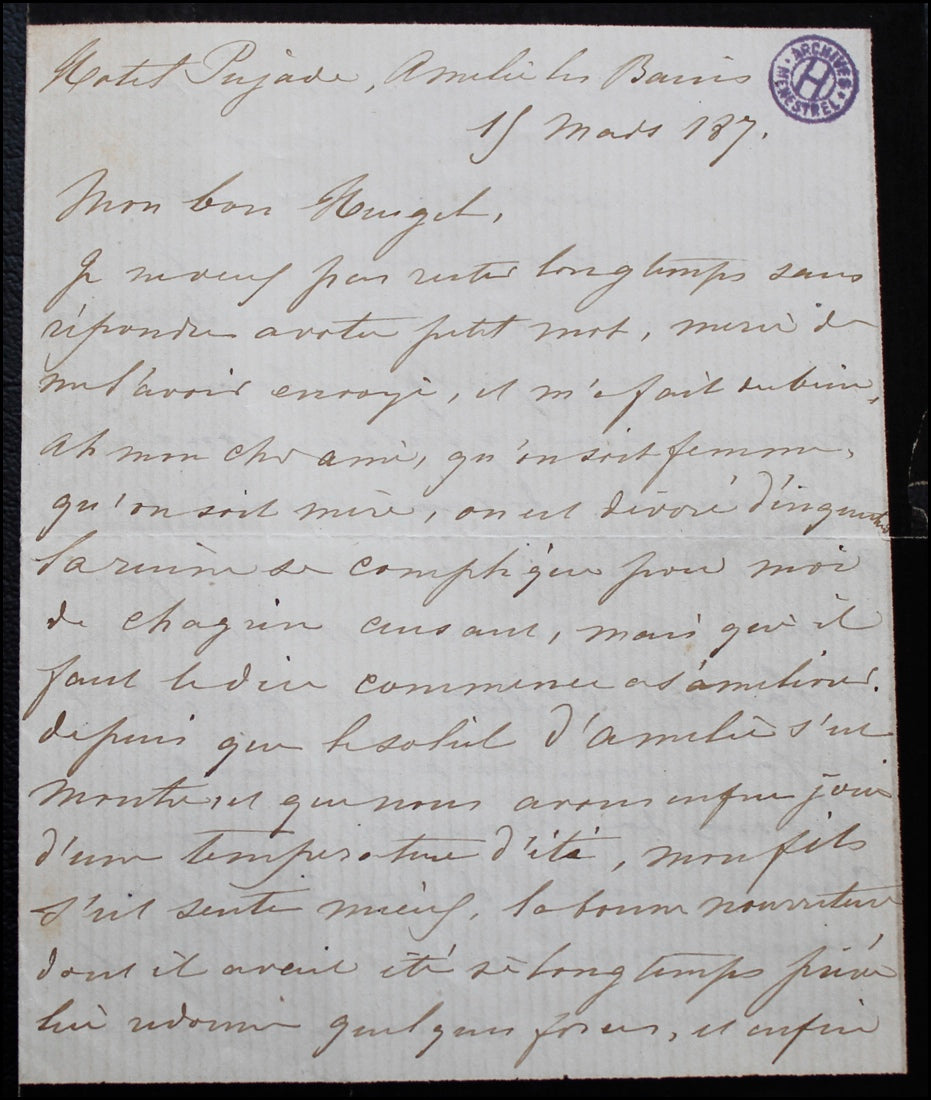 Hotel Pujade, Amelie les Bains
15 Mars 187.
ARCHIVES MENESTREL
H
Mon bon Heugel,
Je ne veux pas rester longtemps sans
répondre a votre petit mot, merci de
me l'avoir envoyé, il m'a fait du bien,
ah mon cher ami, qu'on soit femme,
qu'on soit mère, on est dévoré d'inquietudes
la mienne se complique pour moi
de chagrin cuisant, mais qui il
faut le dire commence a s'améliorer.
depuis que le soleil d'amelie s'est
montré, et que nous avons enfin joui
d'une temperature d'été, mon fils
s'est senti mieux, la bonne nourriture
dont il avait été si longtemps privé
lui redonne quelques forces, et enfin